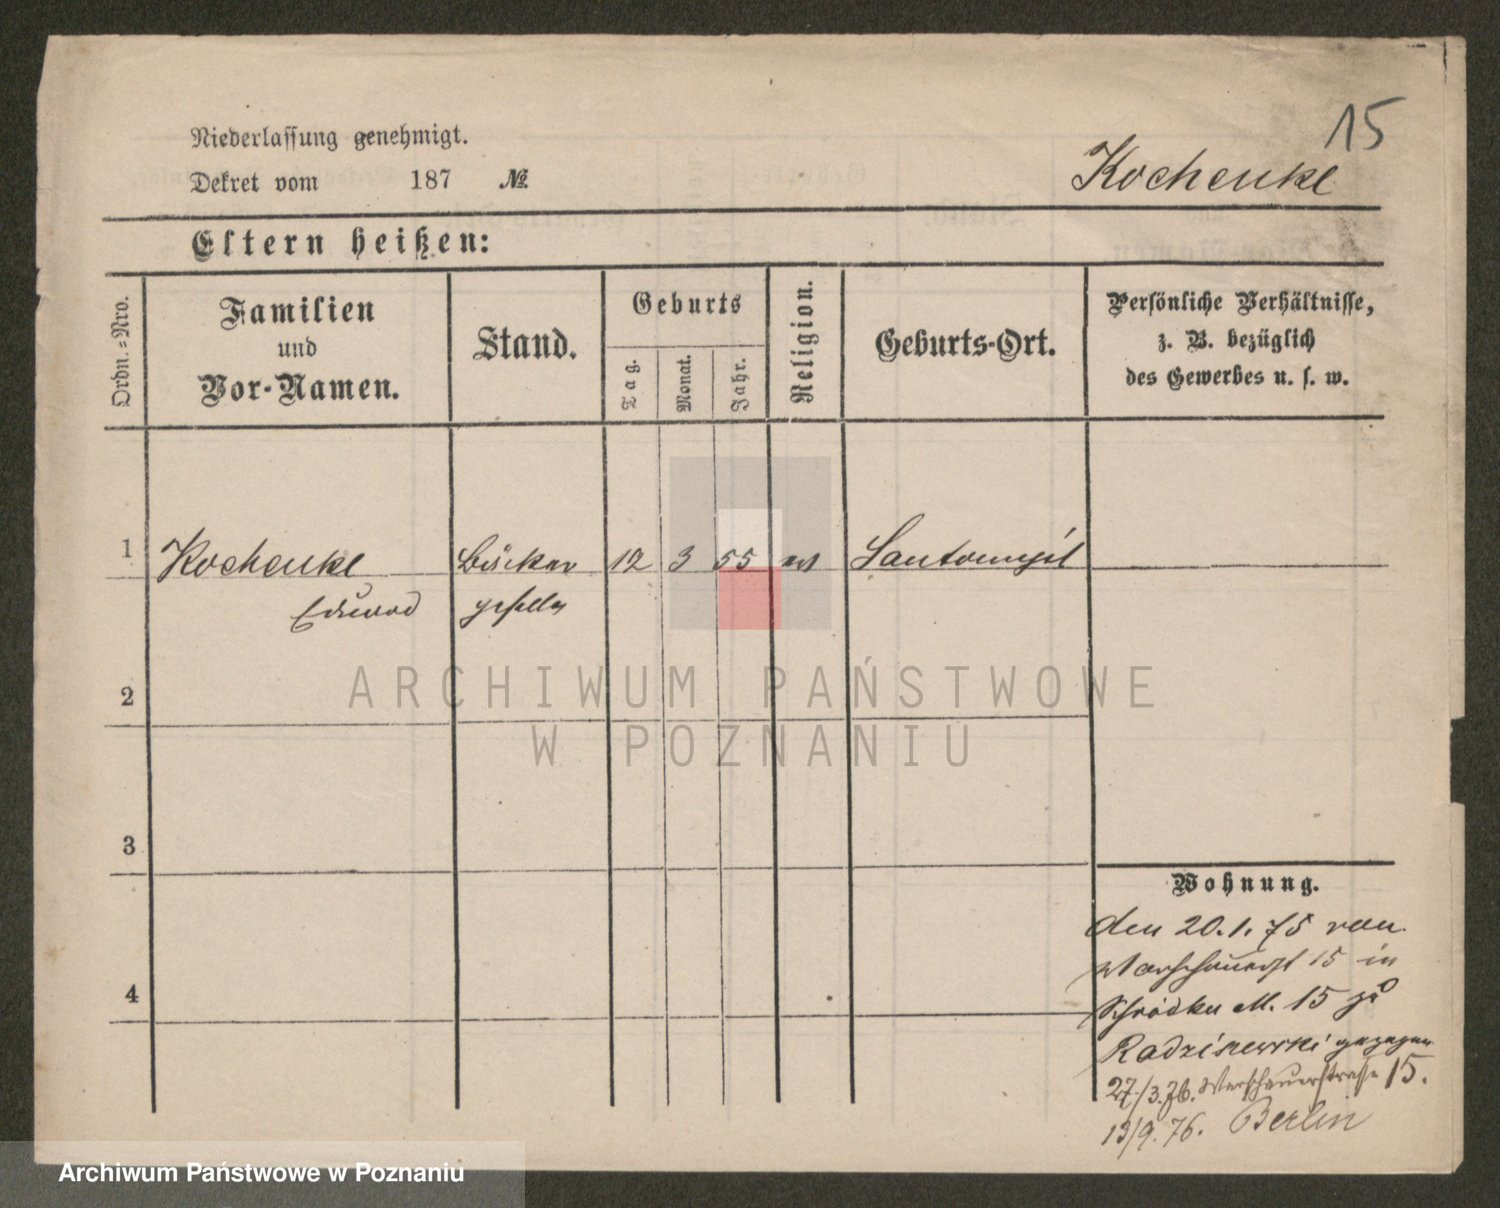 15
Niederlassung genehmigt.
Dekret vom 187 №
Kochenke
Eltern heißen:
Ordn.-Nro.
Familien
und
Vor-Namen.
Stand.
Geburts
Tag.
Monat.
Jahr.
Religion.
Geburts-Ort.
Persönliche Verhältnisse,
z. B. bezüglich
des Gewerbes u. s. w.
1 Kochenke Bäcker 12 3 55 Santomysl
Eduard geselle
ARCHIWUM PAŃSTWOWE
W POZNANIU
2
3
4
Wohnung.
den 20.1.75 von
Warschauerst 15 in
Schrodka M. 15 zu
Radziszewski gezogen
27/3.76. Warschauerstrasse 15.
13/9.76. Berlin
Archiwum Państwowe w Poznaniu